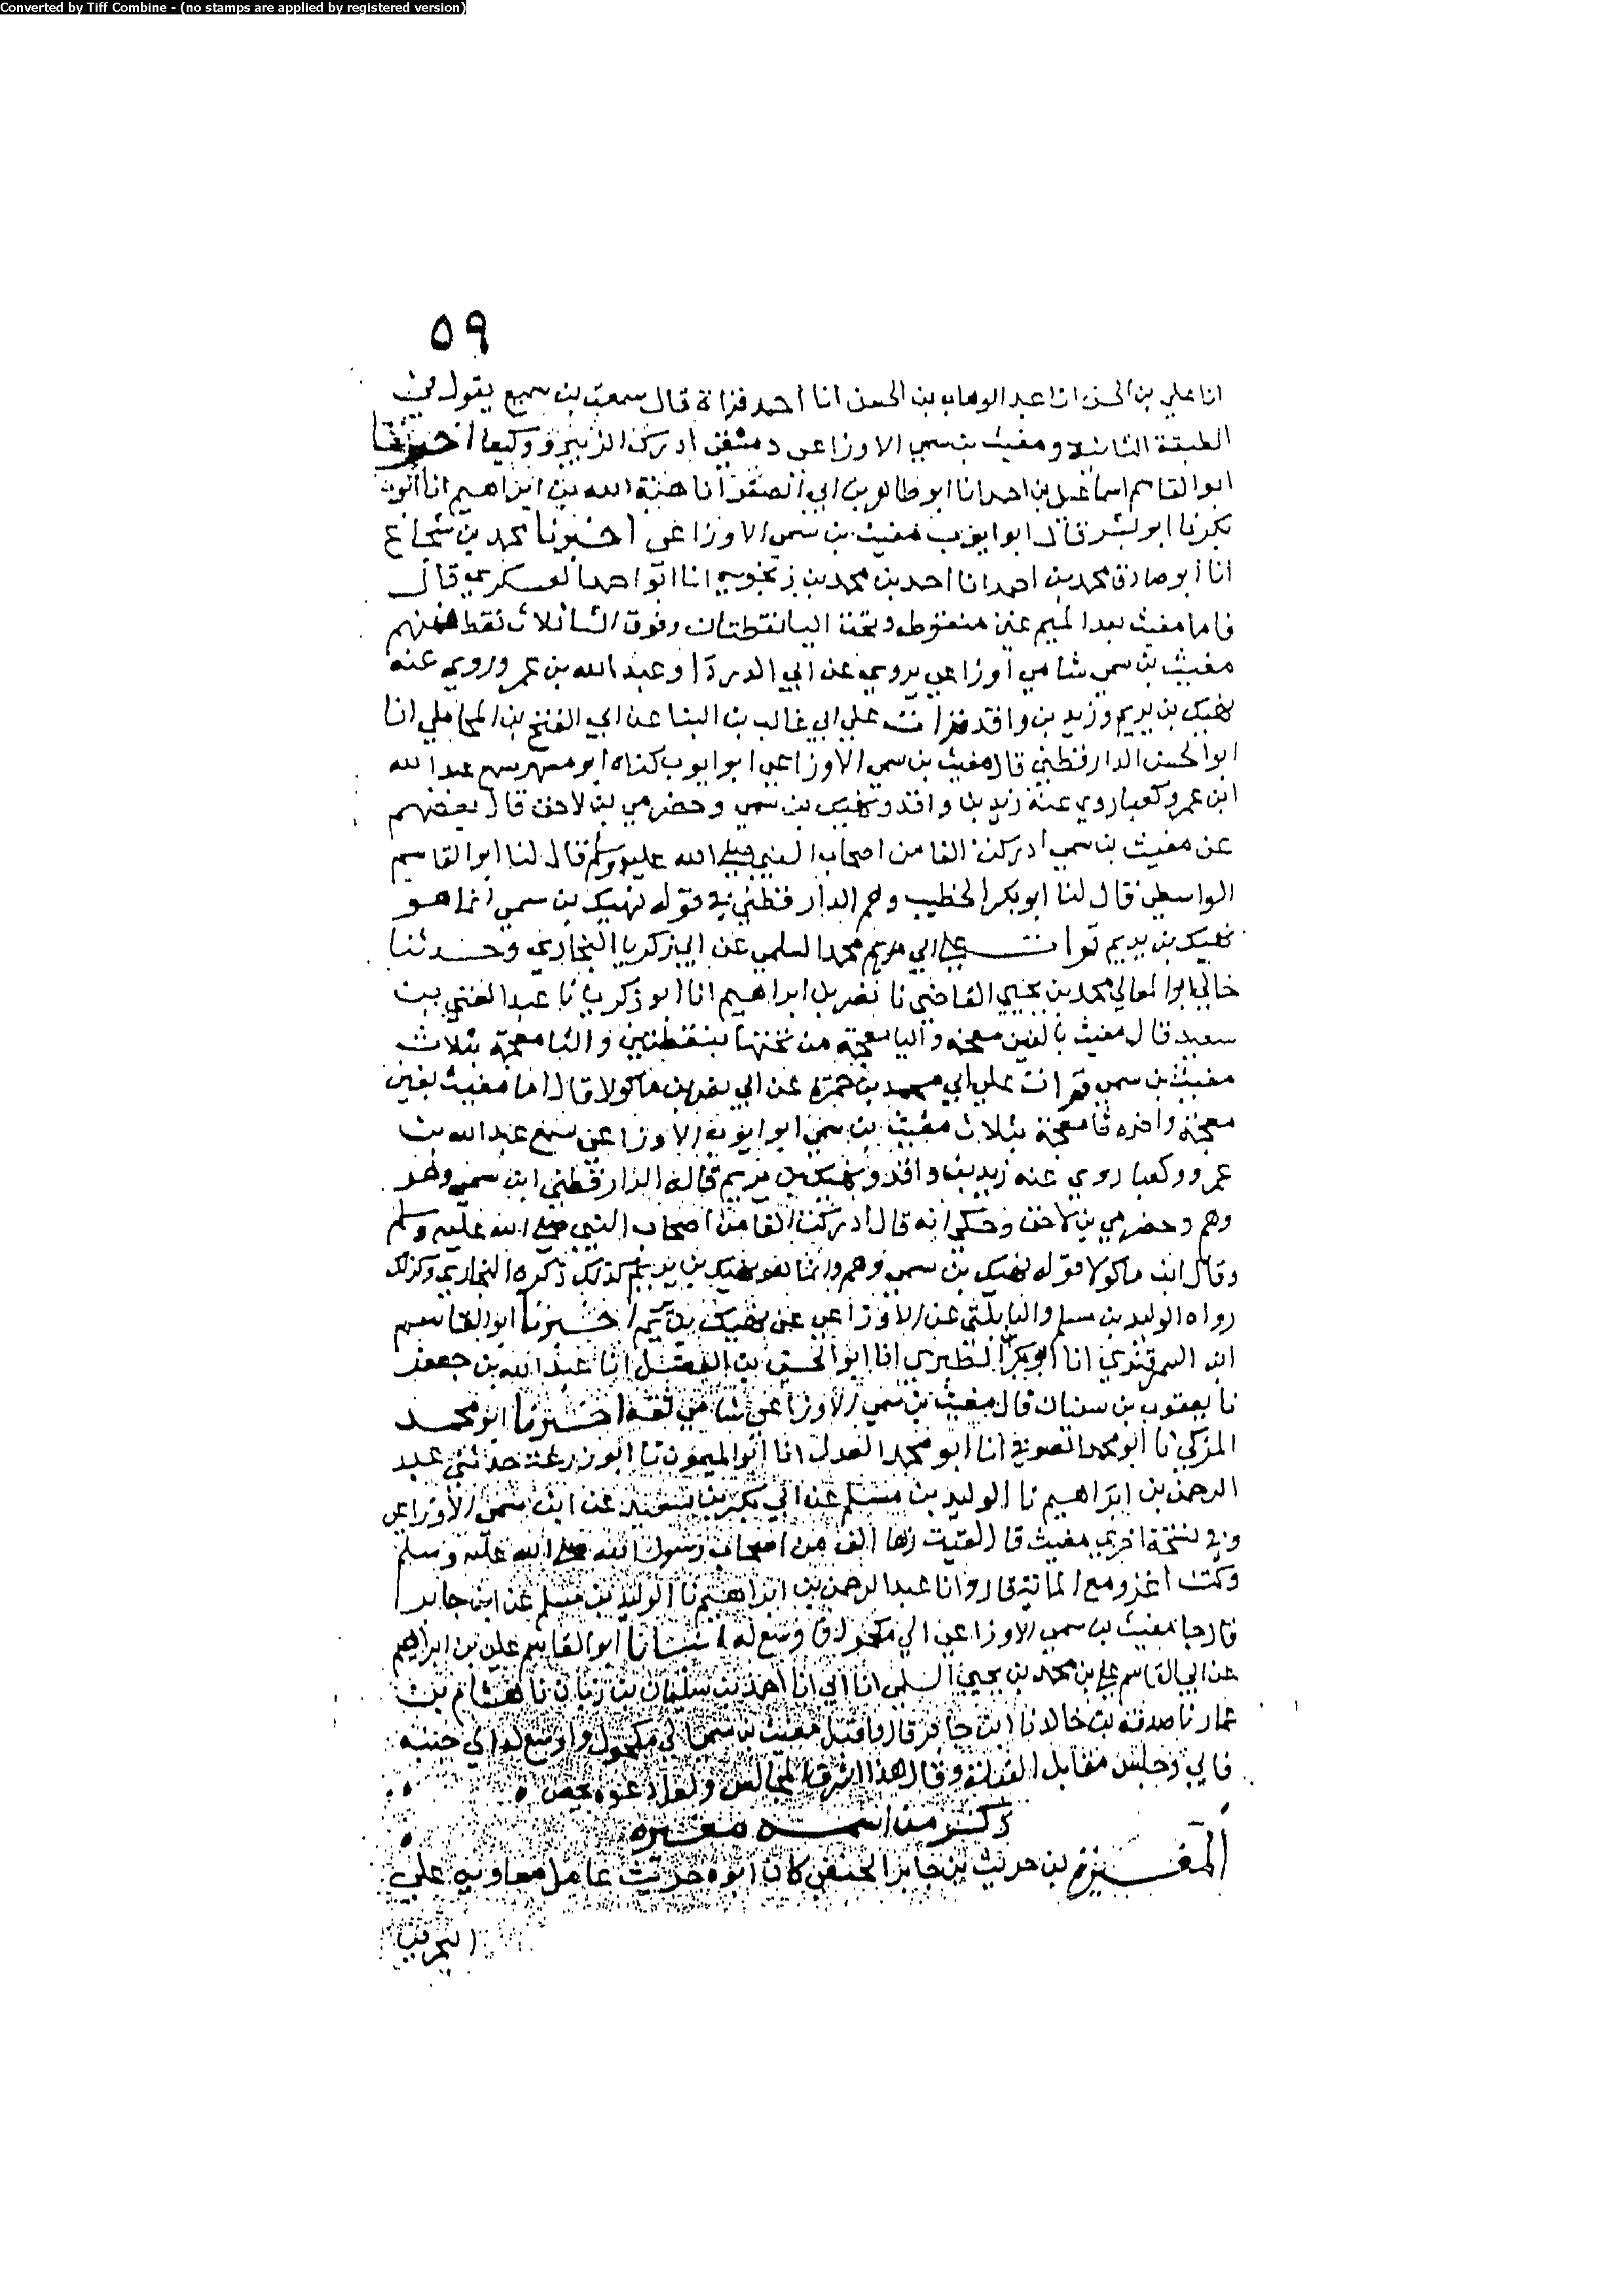 Converted by Tiff Combine - (no stamps are applied by registered version)
٥٩
انا علي بن الحسن انا عبد الوهاب بن الحسن انا احمد قراة قال سمعت بن سميع يقول في
الطبقة الثانية ومغيث بن سمي الاوزاعي دمشقي ادرك الزبير وكعبا اخبرنا
ابو القاسم اسماعيل بن احمد انا ابو طاهر بن ابي الصقر انا هبة الله بن ابراهيم انا ابو
بكر نا ابو بشر قال ابو ايوب مغيث بن سمي الاوزاعي اخبرنا محمد بن شجاع
انا ابو صادق محمد بن احمد انا احمد بن محمد بن زنجويه انا ابو احمد العسكري قال
فاما مغيث بعد الميم غين منقوطه وتحت اليا نقطتان وفوق الثا ثلاث نقط فمنهم
مغيث بن سمي شامي اوزاعي يروي عن ابي الدردا وعبد الله بن عمر وروي عنه
نهيك بن يريم وزيد بن واقد قرات علي ابي غالب بن البنا عن ابي الفتح بن المحاملي انا
ابو الحسن الدارقطني قال مغيث بن سمي الاوزاعي ابو ايوب كناه ابو مسهر سمع عبد الله
ابن عمر وكعبا روي عنه زيد بن واقد ونهيك بن سمي وحضرمي بن لاحق قال بعضهم
عن مغيث بن سمي ادركت الفا من اصحاب النبي صلى الله عليه وسلم قال لنا ابو القاسم
الواسطي قال لنا ابو بكر الخطيب وهم الدارقطني في قوله نهيك بن سمي انما هو
نهيك بن يريم قرات على ابي محمد السلمي عن ابي زكريا البخاري وحدثنا
خالي ابو المعالي محمد بن يحيي القاضي نا نصر بن ابراهيم انا ابو زكريا نا عبد الغني بن
سعيد قال مغيث بالغين معجمة واليا معجمة من تحتها بنقطتين والثا معجمة بثلاث
مغيث بن سمي قرات علي ابي محمد بن حمزة عن ابي نصر بن ماكولا قال اما مغيث بغين
معجمة واخره ثا معجمة بثلاث مغيث بن سمي ابو ايوب الاوزاعي سمع عبد الله بن
عمر وكعبا روي عنه زيد بن واقد ونهيك بن يريم قاله الدارقطني ابن سمي وهو
وهم وحضرمي بن لاحق وحكي انه قال ادركت الفا من اصحاب النبي صلى الله عليه وسلم
وقال ابن ماكولا قوله نهيك بن سمي وهم وانما هو نهيك بن يريم كذلك ذكره البخاري وكذلك
رواه الوليد بن مسلم والبابلتي عن الاوزاعي عن نهيك بن يريم اخبرنا ابو القاسم
ابن السمرقندي انا ابو بكر الطبري انا ابو الحسين بن الفضل انا عبد الله بن جعفر
نا يعقوب بن سفيان قال مغيث بن سمي الاوزاعي شامي ثقة اخبرنا ابو محمد
المزكي نا ابو محمد الصوفي انا ابو محمد العدل انا ابو الميمون نا ابو زرعة حدثني عبد
الرحمن بن ابراهيم نا الوليد بن مسلم عن ابي بكر بن سعيد عن ابن سمي الاوزاعي
وفي نسخة اخري مغيث قال لقيت زها الف من اصحاب رسول الله صلى الله عليه وسلم
وكنت اغزو مع المائة قال وانا عبد الرحمن بن ابراهيم نا الوليد بن مسلم عن ابن جابر
قال جا مغيث بن سمي الاوزاعي الي مكحول فاوسع له انبانا ابو القاسم علي بن ابراهيم
عن ابي القاسم علي بن محمد بن يحيي السلمي انا ابي انا احمد بن سليمان بن زبان نا هشام بن
عمار نا صدقة بن خالد نا ابن جابر قال اقبل مغيث بن سمي الي مكحول واوسع له الي جنبه
فابي وجلس مقابل القبلة وقال هذا اشرف المجالس
ذكر من اسمه مغيره
المغيرة بن حريث بن جابر الحنفي كان ابوه حريث عامل معاويه علي